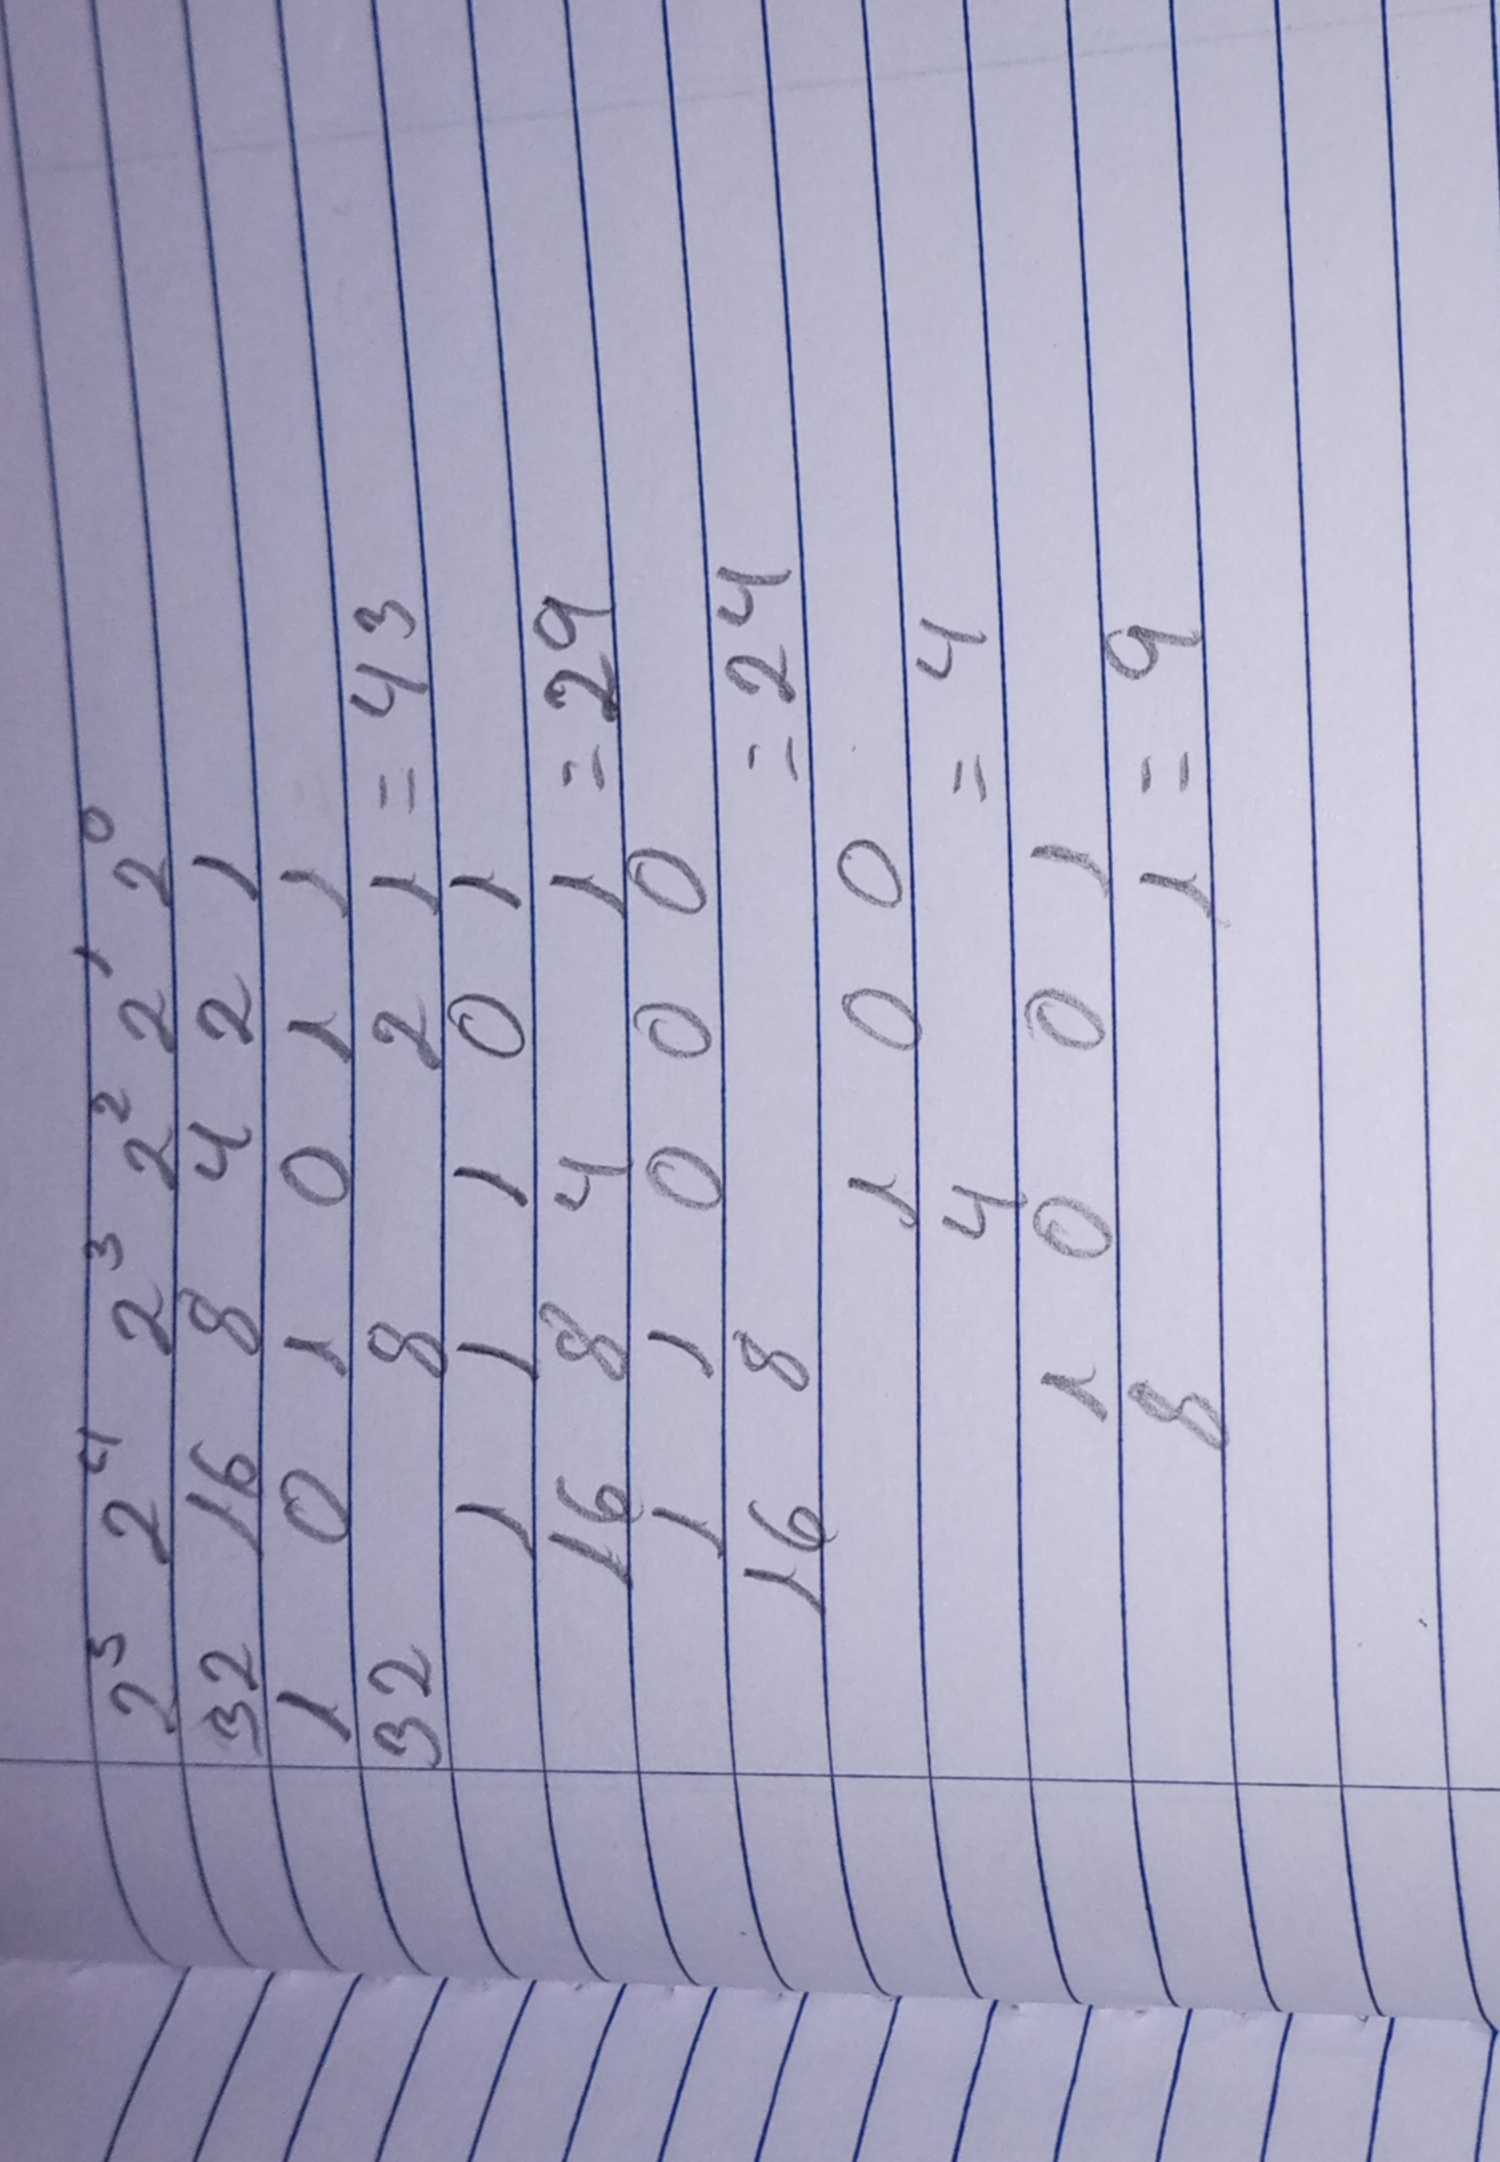 2⁵ 2⁴ 2³ 2² 2¹ 2⁰
32 16 8 4 2 1
1 0 1 0 1 1
32 8 2 1 = 43
1 1 1 0 1
16 8 4 1 = 29
1 1 0 0 0
16 8 = 24
1 0 0
4 = 4
1 0 0 1
8 1 = 9